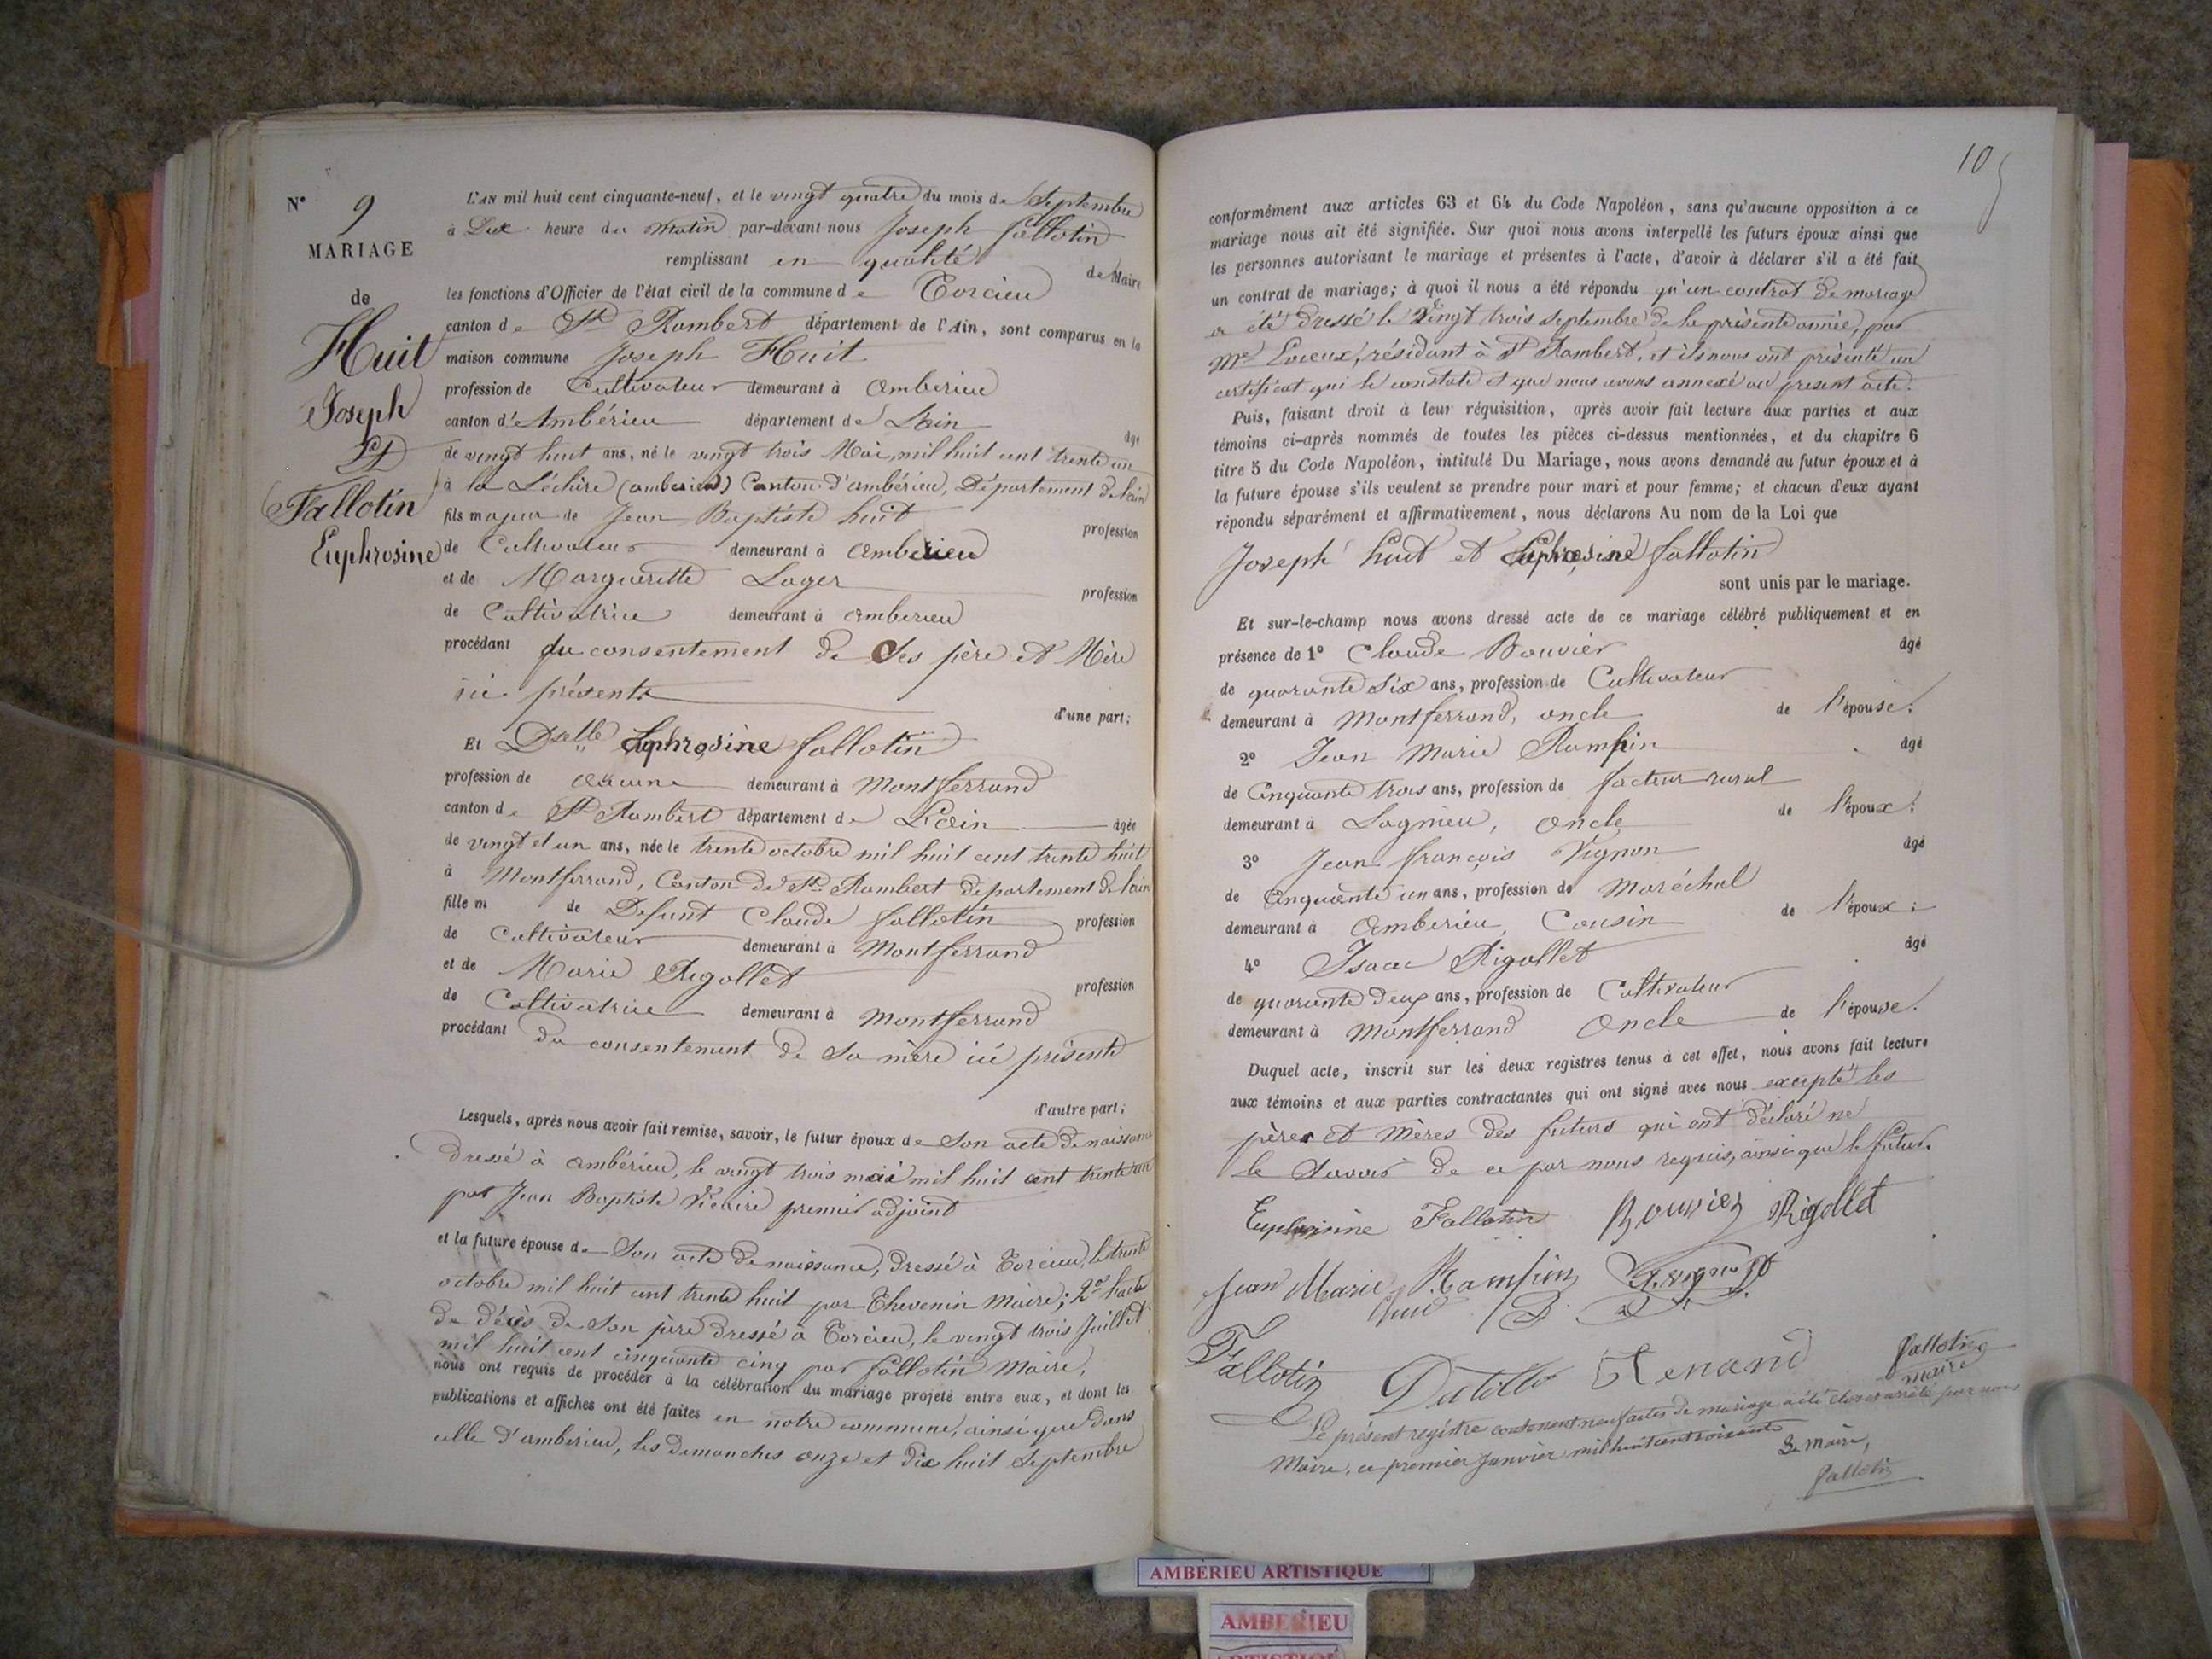 N° 9
MARIAGE
de
Huit
Joseph
Et
Fallotin
Euphrosine
L'AN mil huit cent cinquante-neuf, et le vingt quatre du mois de Septembre
à Dix heure du Matin par-devant nous Joseph fallotin
remplissant en qualité de Maire
les fonctions d'Officier de l'état civil de la commune de Torcieu
canton de St Rambert département de l'Ain, sont comparus en la
maison commune Joseph Huit
profession de Cultivateur demeurant à Amberieu
canton d'Ambérieu département de L'ain
âgé
de vingt huit ans, né le vingt trois Mai, mil huit cent trente un
à la Léchère (amberieu) Canton d'ambérieu, Département de l'ain
fils majeur de Jean Baptiste huit
profession
de Cultivateur demeurant à Amberieu
et de Marguerite Lager
profession
de Cultivatrice demeurant à amberieu
procédant du consentement de Ses père et Mère
ici présents
d'une part;
Et Dselle Euphrosine fallotin
profession de Aucune demeurant à Montferrand
canton de St Rambert département de L'ain âgée
de vingt et un ans, née le trente octobre mil huit cent trente huit
à Montferrand, Canton de St Rambert département de l'ain
fille m de Defunt Claude fallotin profession
de Cultivateur demeurant à Montferrand
et de Marie Rigollet
profession
de Cultivatrice demeurant à Montferrand
procédant du consentement de Sa mère ici présente
d'autre part;
Lesquels, après nous avoir fait remise, savoir, le futur époux de Son acte de naissance
dressé à ambérieu, le vingt trois mai mil huit cent trente un
par Jean Baptiste Vicaire premier adjoint
et la future épouse de Son acte de naissance, dressé à Torcieu, le trente
octobre mil huit cent trente huit par Thevenin Maire; 2° l'acte
de décès de Son père dressé à Torcieu, le vingt trois Juillet
mil huit cent cinquante cinq par fallotin Maire,
nous ont requis de procéder à la célébration du mariage projeté entre eux, et dont les
publications et affiches ont été faites en notre commune, ainsi que dans
celle d'amberieu, les dimanches onze et dix huit Septembre
10
conformément aux articles 63 et 64 du Code Napoléon, sans qu'aucune opposition à ce
mariage nous ait été signifiée. Sur quoi nous avons interpellé les futurs époux ainsi que
les personnes autorisant le mariage et présentes à l'acte, d'avoir à déclarer s'il a été fait
un contrat de mariage; à quoi il nous a été répondu qu'un contrat de mariage
a été dressé le Vingt trois septembre de la présente année, par
Me résidant à St Rambert, et ils nous ont présenté un
certificat qui le constate et que nous avons annexé au présent acte.
Puis, faisant droit à leur réquisition, après avoir fait lecture aux parties et aux
témoins ci-après nommés de toutes les pièces ci-dessus mentionnées, et du chapitre 6
titre 5 du Code Napoléon, intitulé Du Mariage, nous avons demandé au futur époux et à
la future épouse s'ils veulent se prendre pour mari et pour femme; et chacun d'eux ayant
répondu séparément et affirmativement, nous déclarons Au nom de la Loi que
Joseph huit et Euphrosine fallotin
sont unis par le mariage.
Et sur-le-champ nous avons dressé acte de ce mariage célébré publiquement et en
présence de 1° Claude Bouvier âgé
de quarante Six ans, profession de Cultivateur
demeurant à Montferrand, oncle de l'épouse.
2° Jean Marie Rampin âgé
de Cinquante trois ans, profession de facteur rural
demeurant à Lagnieu, oncle de l'époux.
3° Jean françois Vignon âgé
de Cinquante un ans, profession de Maréchal
demeurant à Amberieu, Cousin de l'époux;
4° Isaac Rigollet âgé
de quarante deux ans, profession de Cultivateur
demeurant à Montferrand Oncle de l'épouse.
Duquel acte, inscrit sur les deux registres tenus à cet effet, nous avons fait lecture
aux témoins et aux parties contractantes qui ont signé avec nous excepté les
pères et Mères des futurs qui ont déclaré ne
le Savoir de ce par nous requis, ainsi que le futur.
Euphrosine Fallotin Bouvier Rigollet
Jean Marie Rampin
Fallotin Renand fallotin
maire
Le présent registre contenant neuf actes de mariage a été clos et arrêté par nous
Maire, ce premier Janvier mil huit cent soixante
Le Maire,
fallotin
AMBERIEU ARTISTIQUE
AMBERIEU
ARTISTIQUE